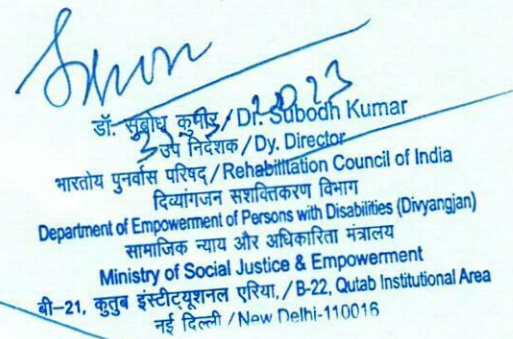 डॉ. सुबोध कुमार / Dr. Subodh Kumar
उप निदेशक / Dy. Director
भारतीय पुनर्वास परिषद् / Rehabilitation Council of India
दिव्यांगजन सशक्तिकरण विभाग
Department of Empowerment of Persons with Disabilities (Divyangjan)
सामाजिक न्याय और अधिकारिता मंत्रालय
Ministry of Social Justice & Empowerment
बी–21, कुतुब इंस्टीट्यूशनल एरिया, / B-22, Qutab Institutional Area
नई दिल्ली / New Delhi-110016